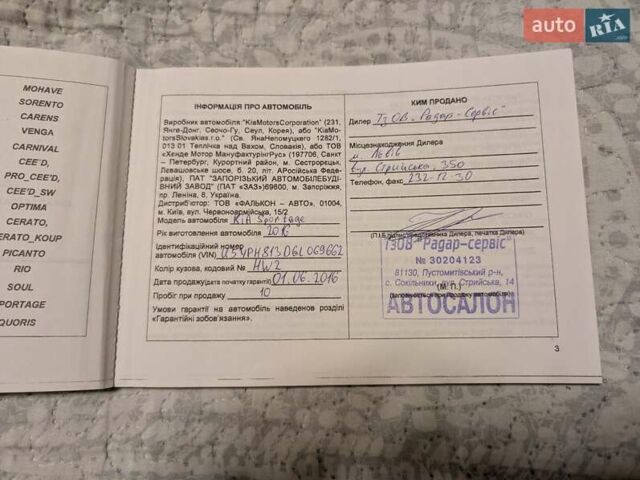 auto RIA
MOHAVE
SORENTO
CARENS
VENGA
CARNIVAL
CEE'D,
PRO_CEE'D,
CEE'D_SW
OPTIMA
CERATO,
ERATO_KOUP
PICANTO
RIO
SOUL
PORTAGE
QUORIS
ІНФОРМАЦІЯ ПРО АВТОМОБІЛЬ
Виробник автомобіля:"KiaMotorsCorporation" (231,
Янге-Донг, Сеочо-Гу, Сеул, Корея), або "KiaMo-
torsSlovakias.r.o." (Св. ЯнаНепомуцкего 1282/1,
013 01 Тепличка над Вахом, Словакія), або ТОВ
«Хенде Мотор МануфактурінгРус» (197706, Санкт
– Петербург, Курортний район, м. Сестрорецьк,
Левашовське шосе, б. 20, літ. АРосійська Феде-
рація), ПАТ "ЗАПОРІЗЬКИЙ АВТОМОБІЛЕБУДІ-
ВНИЙ ЗАВОД" (ПАТ «ЗАЗ»)69600, м. Запоріжжя,
пр. Леніна, 8, Україна.
Дистриб'ютор: ТОВ «ФАЛЬКОН – АВТО», 01004,
м. Київ, вул. Червоноармійська, 15/2
Модель автомобіля KIA Sportage
Рік виготовлення автомобіля 2016
Ідентифікаційний номер
автомобіля (VIN) U5YPH813DGL069662
Колір кузова, кодовий № HW2
Дата продажу(дата початку гарантії) 01.06.2016
Пробіг при продажу 10
Умови гарантії на автомобіль наведенов розділі
«Гарантійні зобов'язання».
КИМ ПРОДАНО
Дилер ТзОВ „Радар-Сервіс"
Місцезнаходження Дилера
м. Львів
вул. Стрийська, 350
Телефон, факс 232-12-30
(П.І.Б,підпис представника Дилера, печатка Дилера)
ТЗОВ "Радар-сервіс"
№ 30204123
81130, Пустомитівський р-н,
с. Сокільники, вул. Стрийська, 14
(М. П.)
(Заповнюється при продажу автомобіля)
АВТОСАЛОН
3